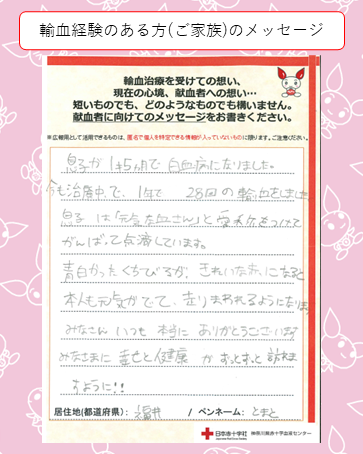 輸血経験のある方(ご家族)のメッセージ
輸血治療を受けての想い、
現在の心境、献血者への想い…
短いものでも、どのようなものでも構いません。
献血者に向けてのメッセージをお書きください。
※広報用として活用できるものは、匿名で個人を特定できる情報が入っていないものに限ります。ご注意ください。
息子が1才5ヶ月で白血病になりました。
今も治療中で、1年で28回の輸血をしました
息子は「元気な血さん」と愛称をつけて
がんばって点滴しています。
青白かったくちびるが、きれいな赤いになると
本人も元気がでて、走りまわれるようになります
みなさんいつも本当にありがとうございます
みなさまに幸せと健康がずっとずっと訪れ
ますように!!
居住地(都道府県): 福井 / ペンネーム: とまと
日本赤十字社 神奈川県赤十字血液センター